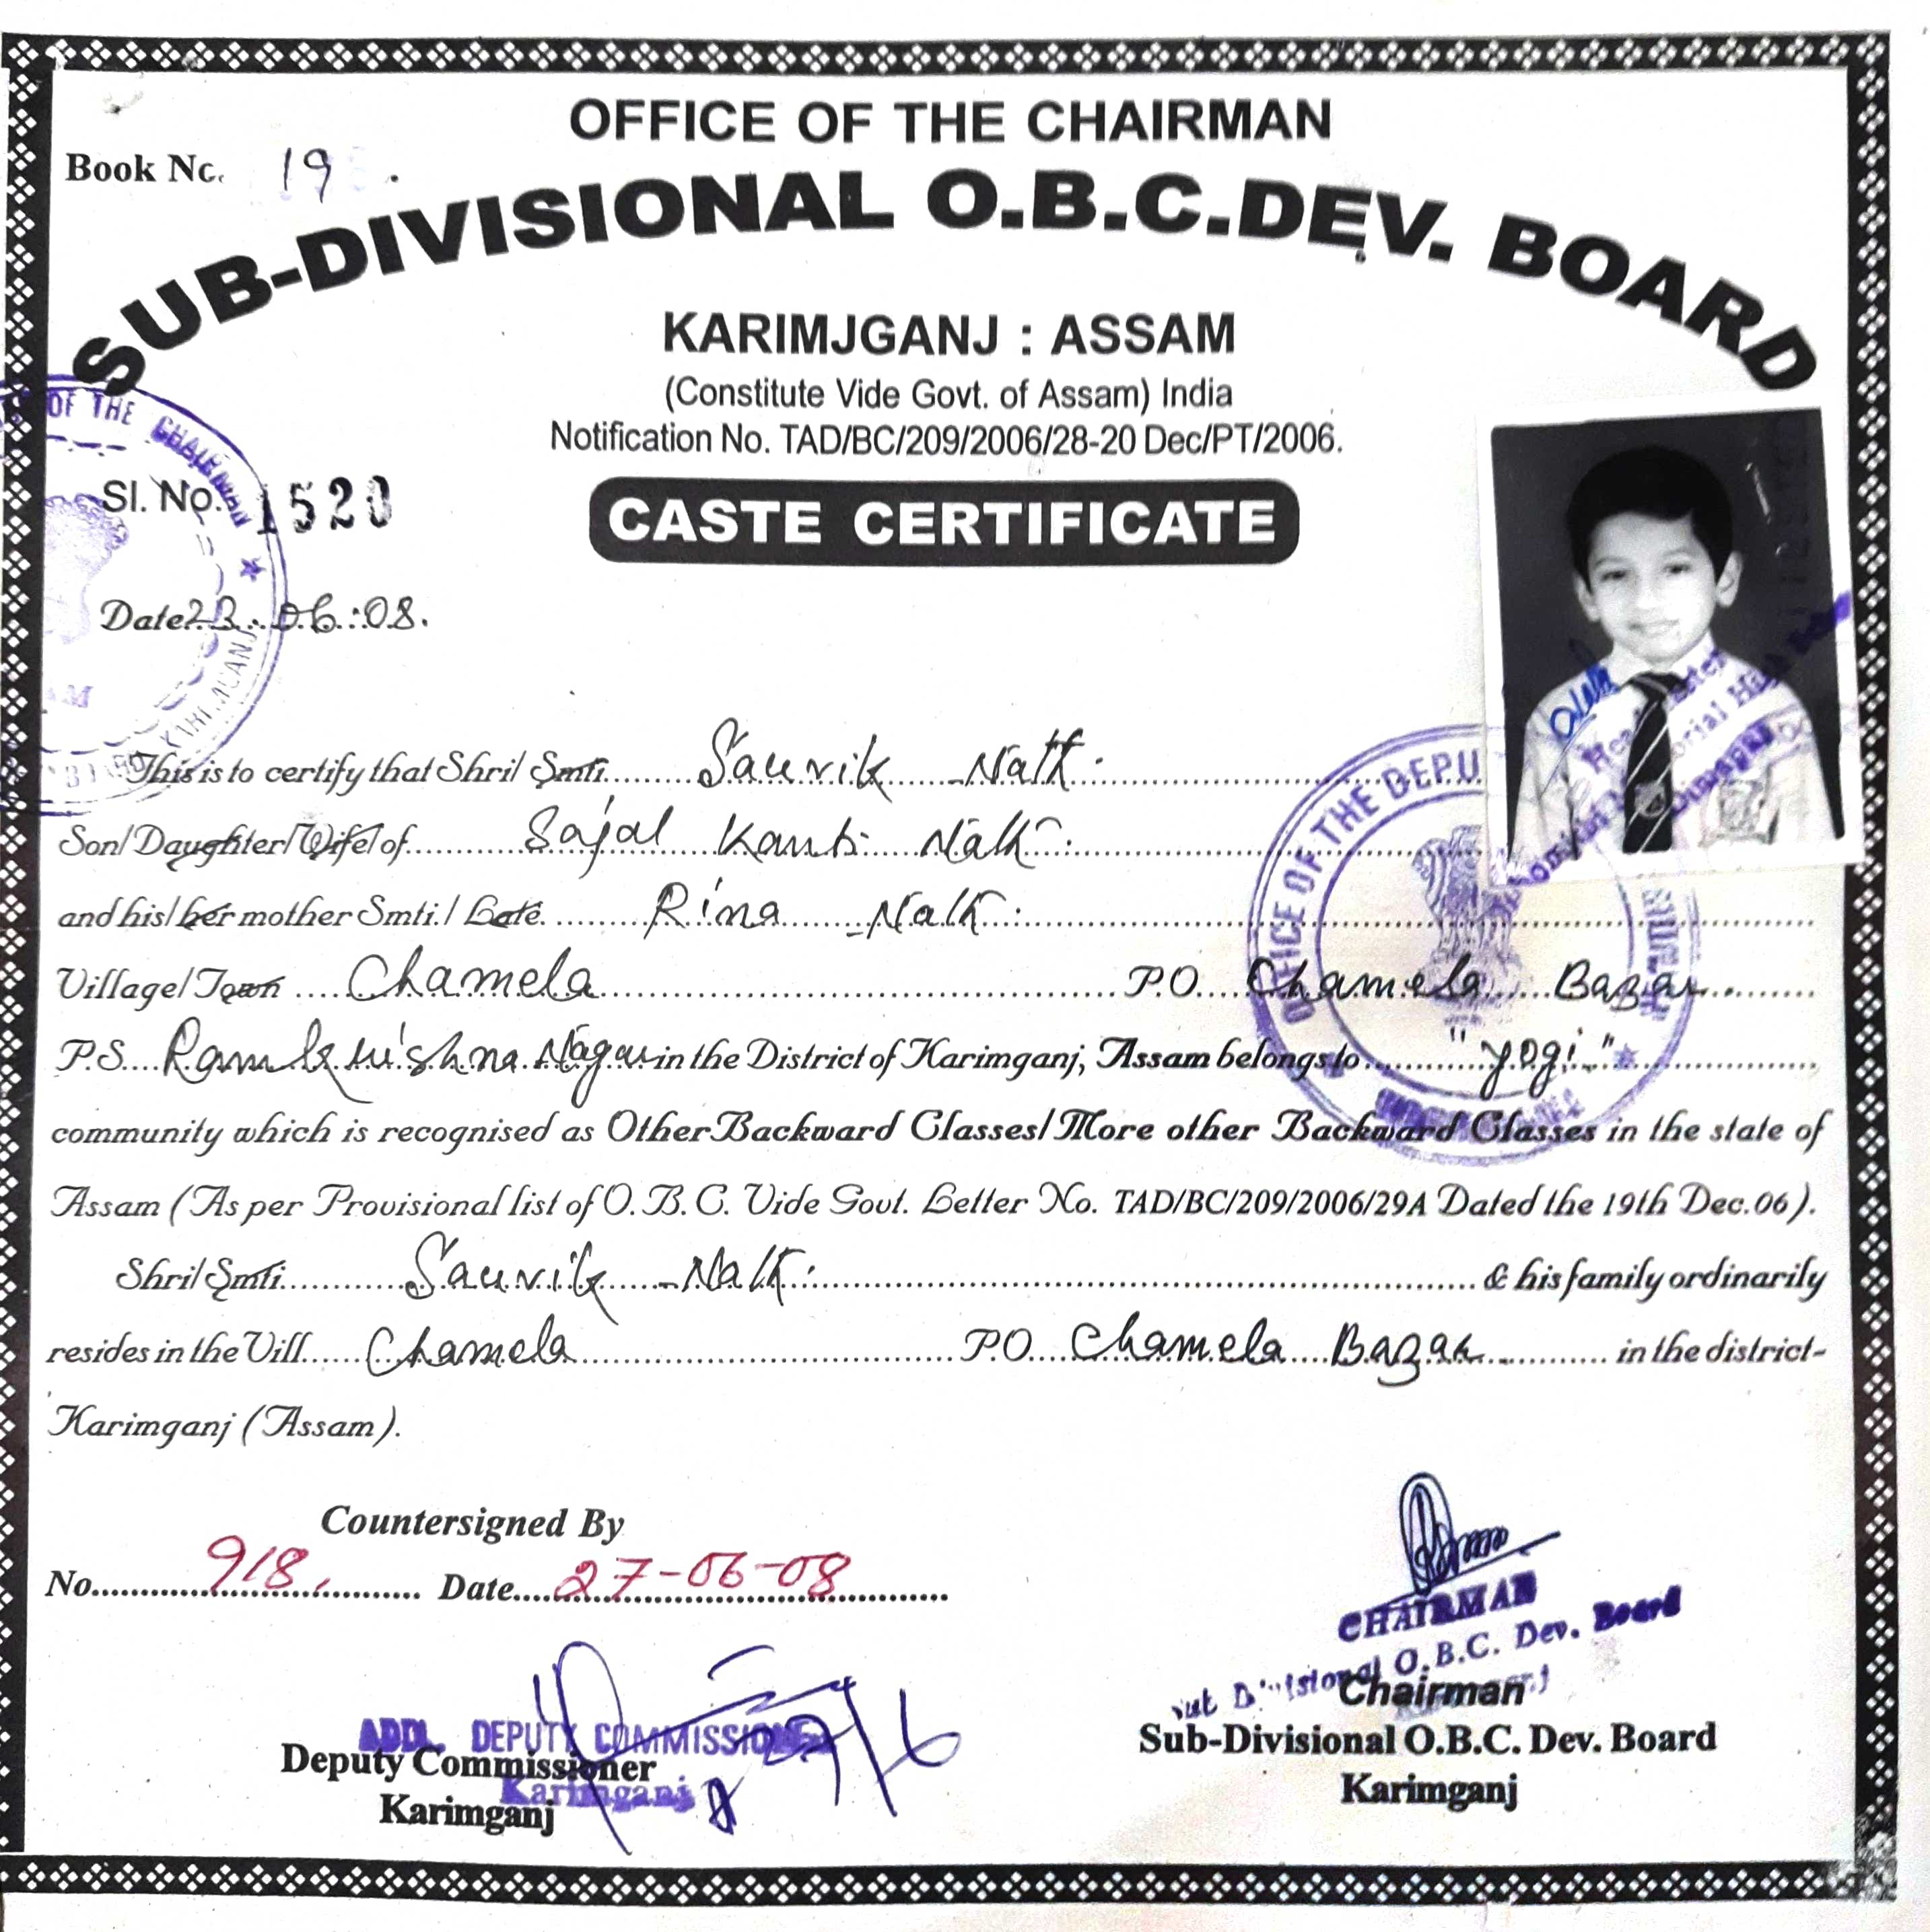 OFFICE OF THE CHAIRMAN
Book No. 19
SUB-DIVISIONAL O.B.C.DEV. BOARD
KARIMJGANJ : ASSAM
(Constitute Vide Govt. of Assam) India
Notification No. TAD/BC/209/2006/28-20 Dec/PT/2006.
OF THE CHAIRMAN
Sl. No. 1520
CASTE CERTIFICATE
Date 23.06.08.
KARIMGANJ
This is to certify that Shri/ Smti. Sauvik Nath.
Son/ Daughter/ Wife/ of Sajal Kanti Nath.
and his/ her mother Smti. / Late. Rina Nath.
Village/ Town Chamela P.O. Chamela Bazar.
P.S. Ramkrishna Nagar in the District of Karimganj, Assam belongs to "Yogi"
community which is recognised as Other Backward Classes/ More other Backward Classes in the state of
Assam (As per Provisional list of O. B. C. Vide Govt. Letter No. TAD/BC/209/2006/29A Dated the 19th Dec.06).
Shri/ Smti. Sauvik Nath. & his family ordinarily
resides in the Vill. Chamela P.O. Chamela Bazar in the district-
Karimganj (Assam).
OFFICE OF THE DEPU
Countersigned By
No. 918. Date 27-06-08
CHAIRMAN
Sub Divisional O.B.C. Dev. Board
Chairman
Sub-Divisional O.B.C. Dev. Board
Karimganj
ADDL. DEPUTY COMMISSIONE
Deputy Commissioner
Karimganj
Karimganj
27/6